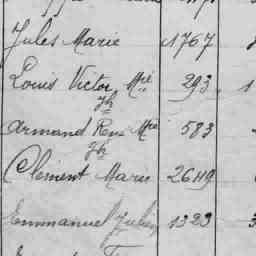 Jules Marie 1767
Louis Victor Mié 293 1
Jh
Armand René Mie 583
Jh
Clément Marie 2619
Emmanuel Julien 1323 3